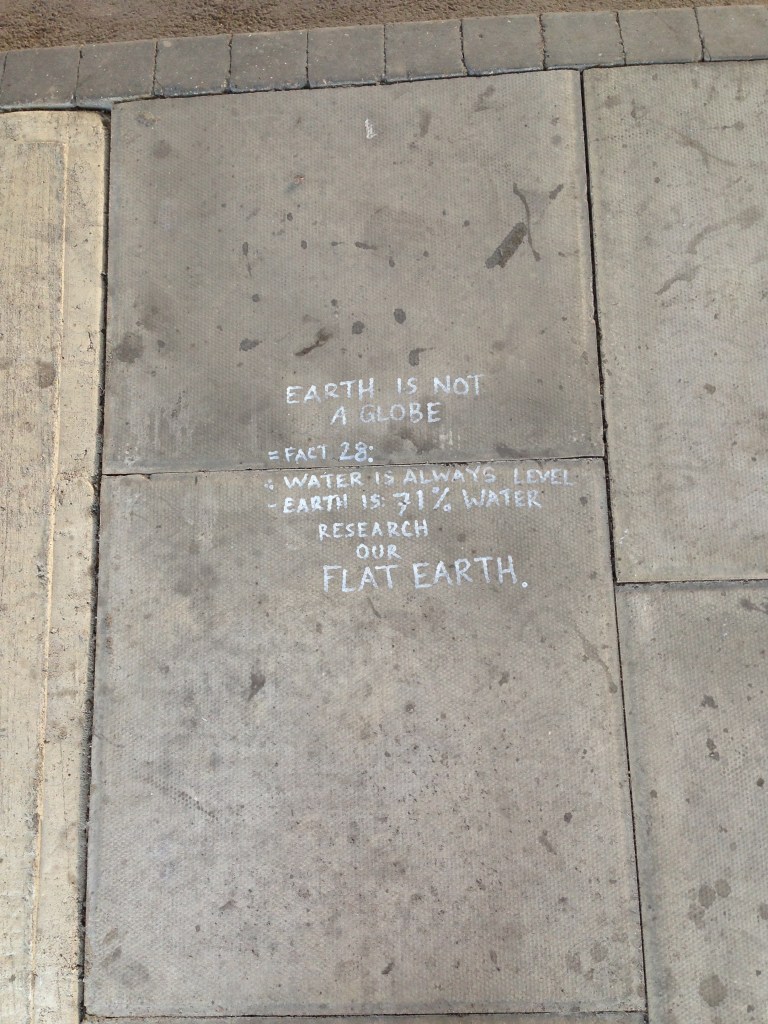 EARTH IS NOT
A GLOBE
= FACT 28:
: WATER IS ALWAYS LEVEL
- EARTH IS 71% WATER
RESEARCH
OUR
FLAT EARTH.